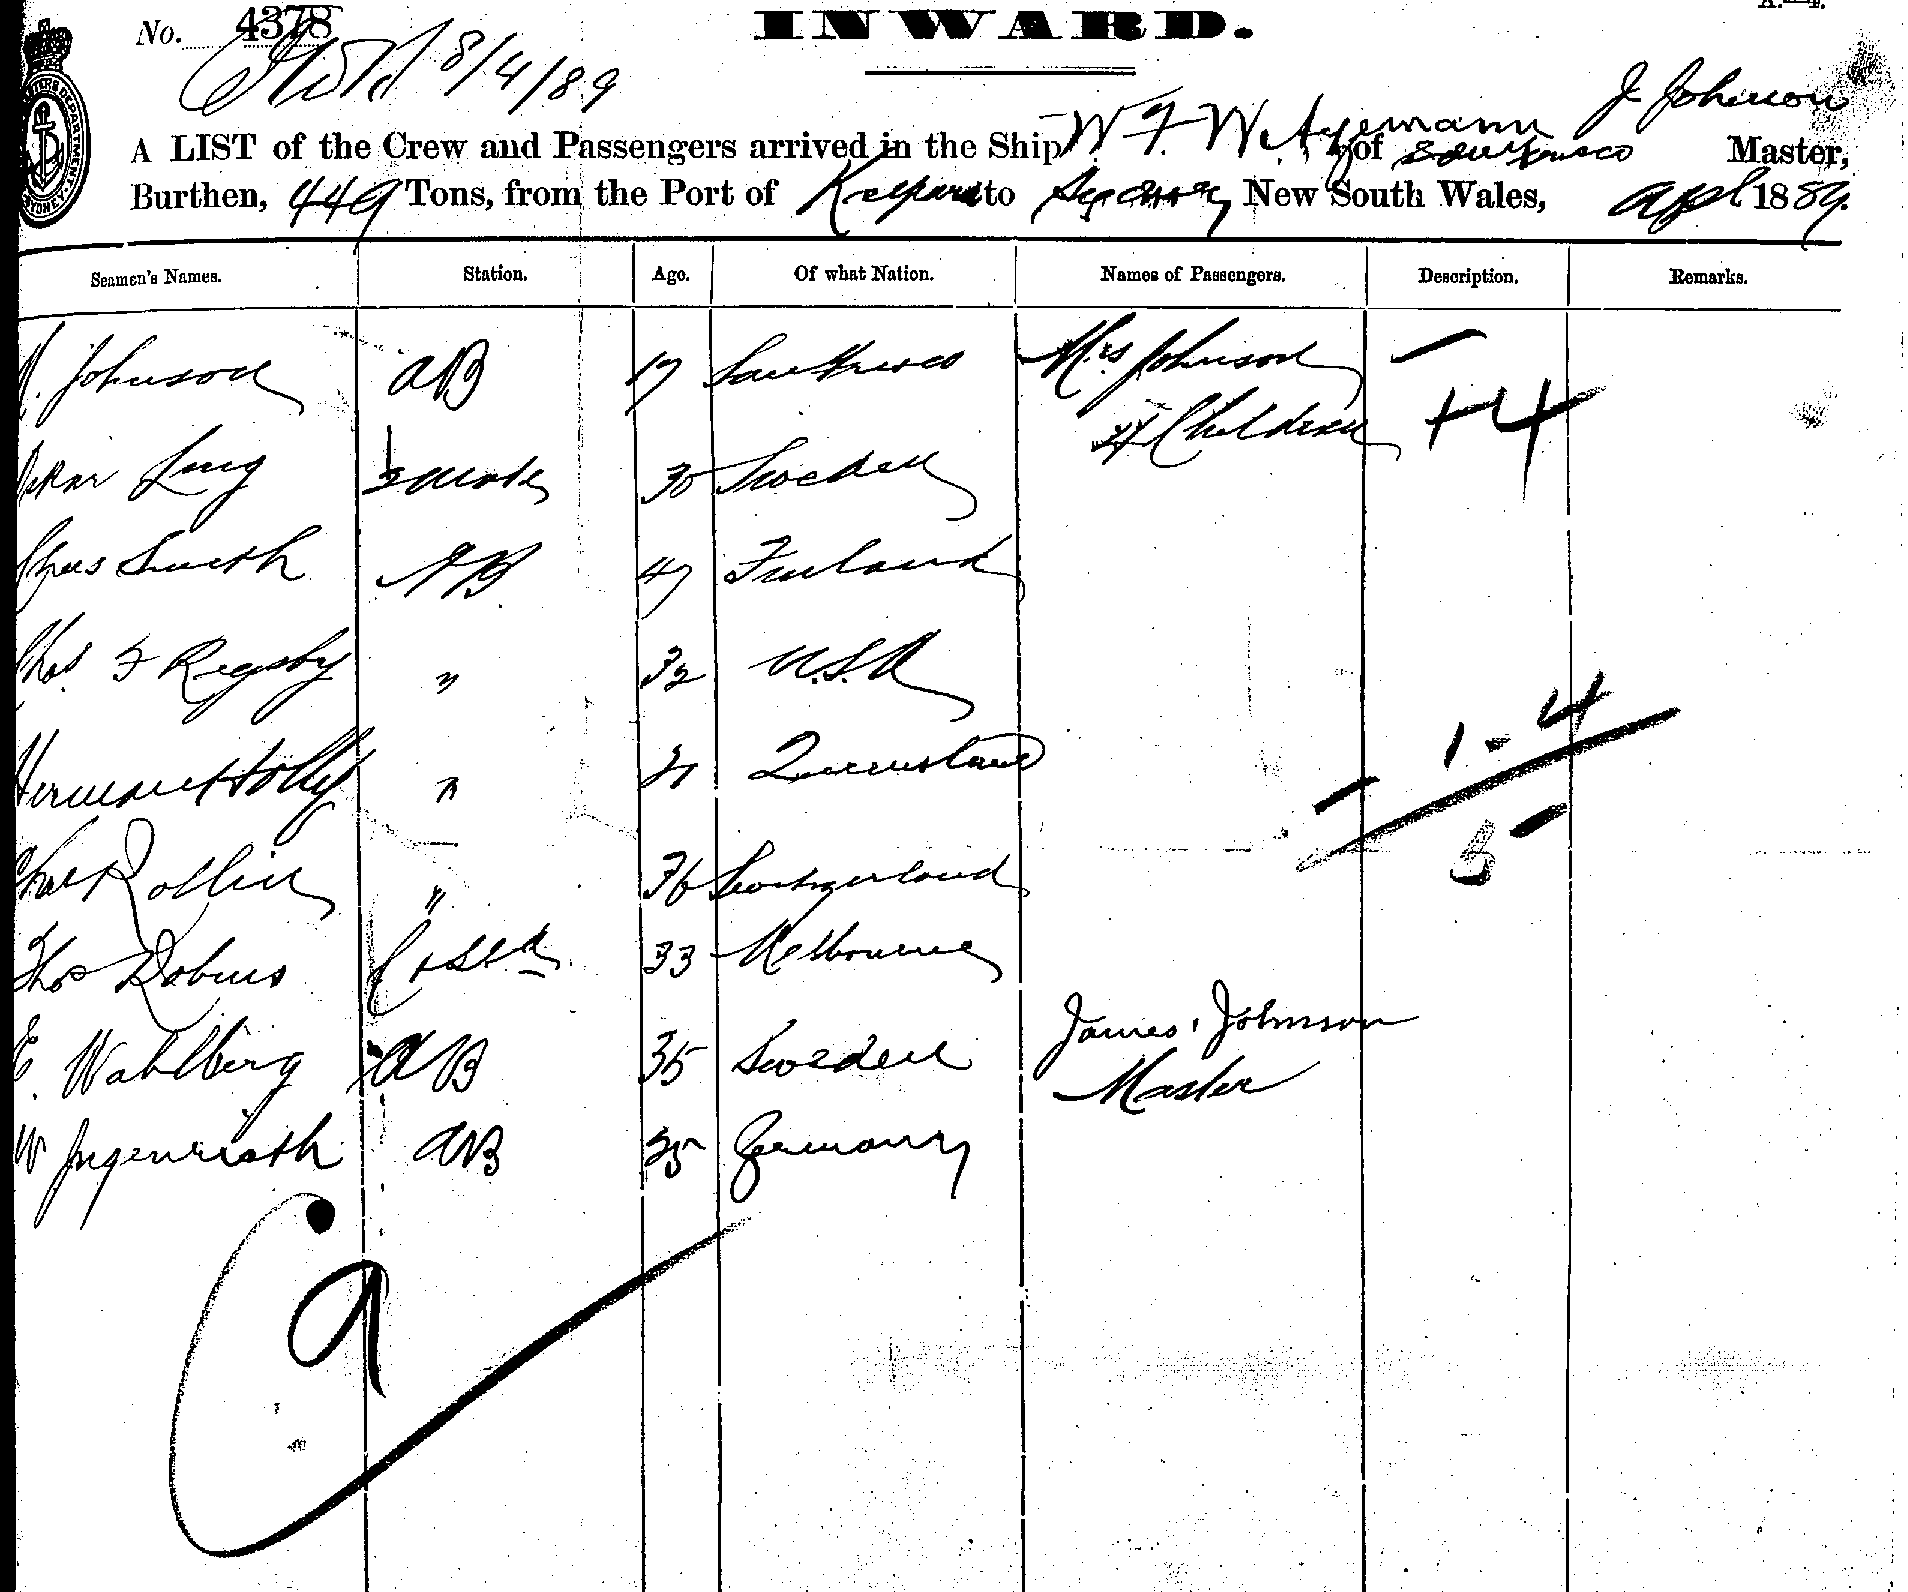 No. 4378
INWARD.
8/4/89
J Johnson
A LIST of the Crew and Passengers arrived in the Ship W. F. Witzemann of San Frisco Master,
Burthen, 449 Tons, from the Port of Kaipara to Sydney New South Wales, Apl 1889.
Seamen's Names. Station. Age. Of what Nation. Names of Passengers. Description. Remarks.
Johnson AB 17 San Frisco Mrs Johnson —
4 Children + 4
Oskar Ling 2 Mate 30 Sweden
Chas Smith AB 47 Finland
Chas. F Regsby " 32 U.S.A
Herman Holly " 21 Queensland
1 - 4
Chas Rollin " 36 Switzerland
5 -
Thos Robins 33 Melbourne
James Johnson
E. Wahlberg AB 35 Sweden
Master
W Jngenrieth AB 25 Germany
9